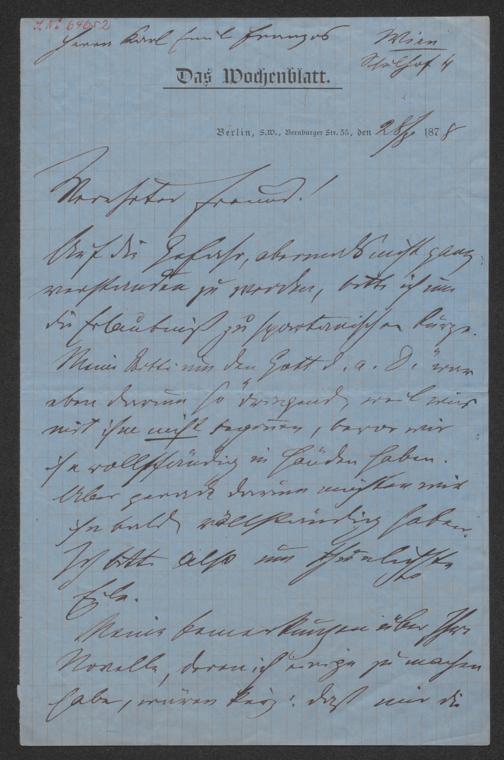 I.N. 64652
Herrn Karl Emil Franzos
Wien
Schulhof 4
Das Wochenblatt.
Berlin, S.W., Bernburger Str. 35, den 28/ 1878
Verehrter Freund!
Auf die Gefahr, abermals nicht ganz
verstanden zu werden, bitte ich um
die Erlaubniß zu spartanischer Kürze.
Meine Bitte um den „Gott d. a. D." war
eben darum so dringend, weil wir
mit ihm nicht beginnen, bevor wir
ihn vollständig in Händen haben.
Aber gerade darum möchten wir
ihn bald vollständig haben.
Ich bitte also um thunlichste
Eile.
Meine Bemerkungen über Ihre
Novelle, deren ich einige zu machen
habe, wären kurz: daß mir die